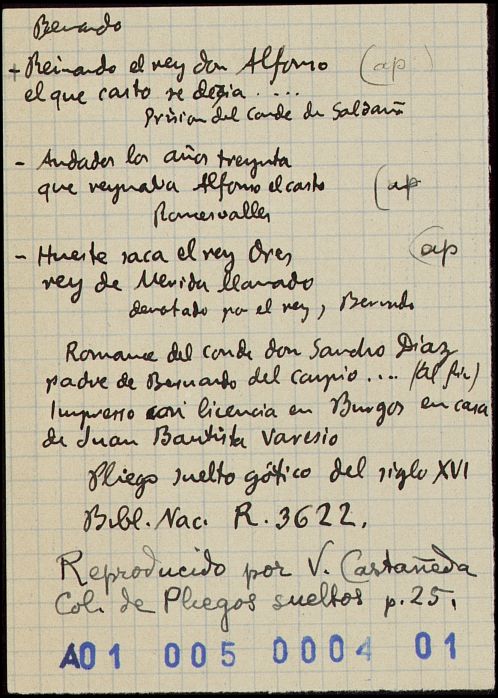 Bernardo
+ Reinando el rey don Alfonso (ap)
el que casto se dezia ....
Prision del conde de Saldaña
- Andados los años treynta
que reynaba Alfonso el casto (ap
Roncesvalles
- Hueste saca el rey Ores (ap
rey de Merida llamado
derrotado por el rey, Bernardo
Romance del conde don Sancho Diaz
padre de Bernardo del carpio .... (Al fin)
Impresso con licencia en Burgos en casa
de Juan Bautista Varesio
Pliego suelto gótico del siglo XVI
Bibl. Nac. R. 3622.
Reproducido por V. Castañeda
Col. de Pliegos sueltos p. 25.
A01 005 0004 01